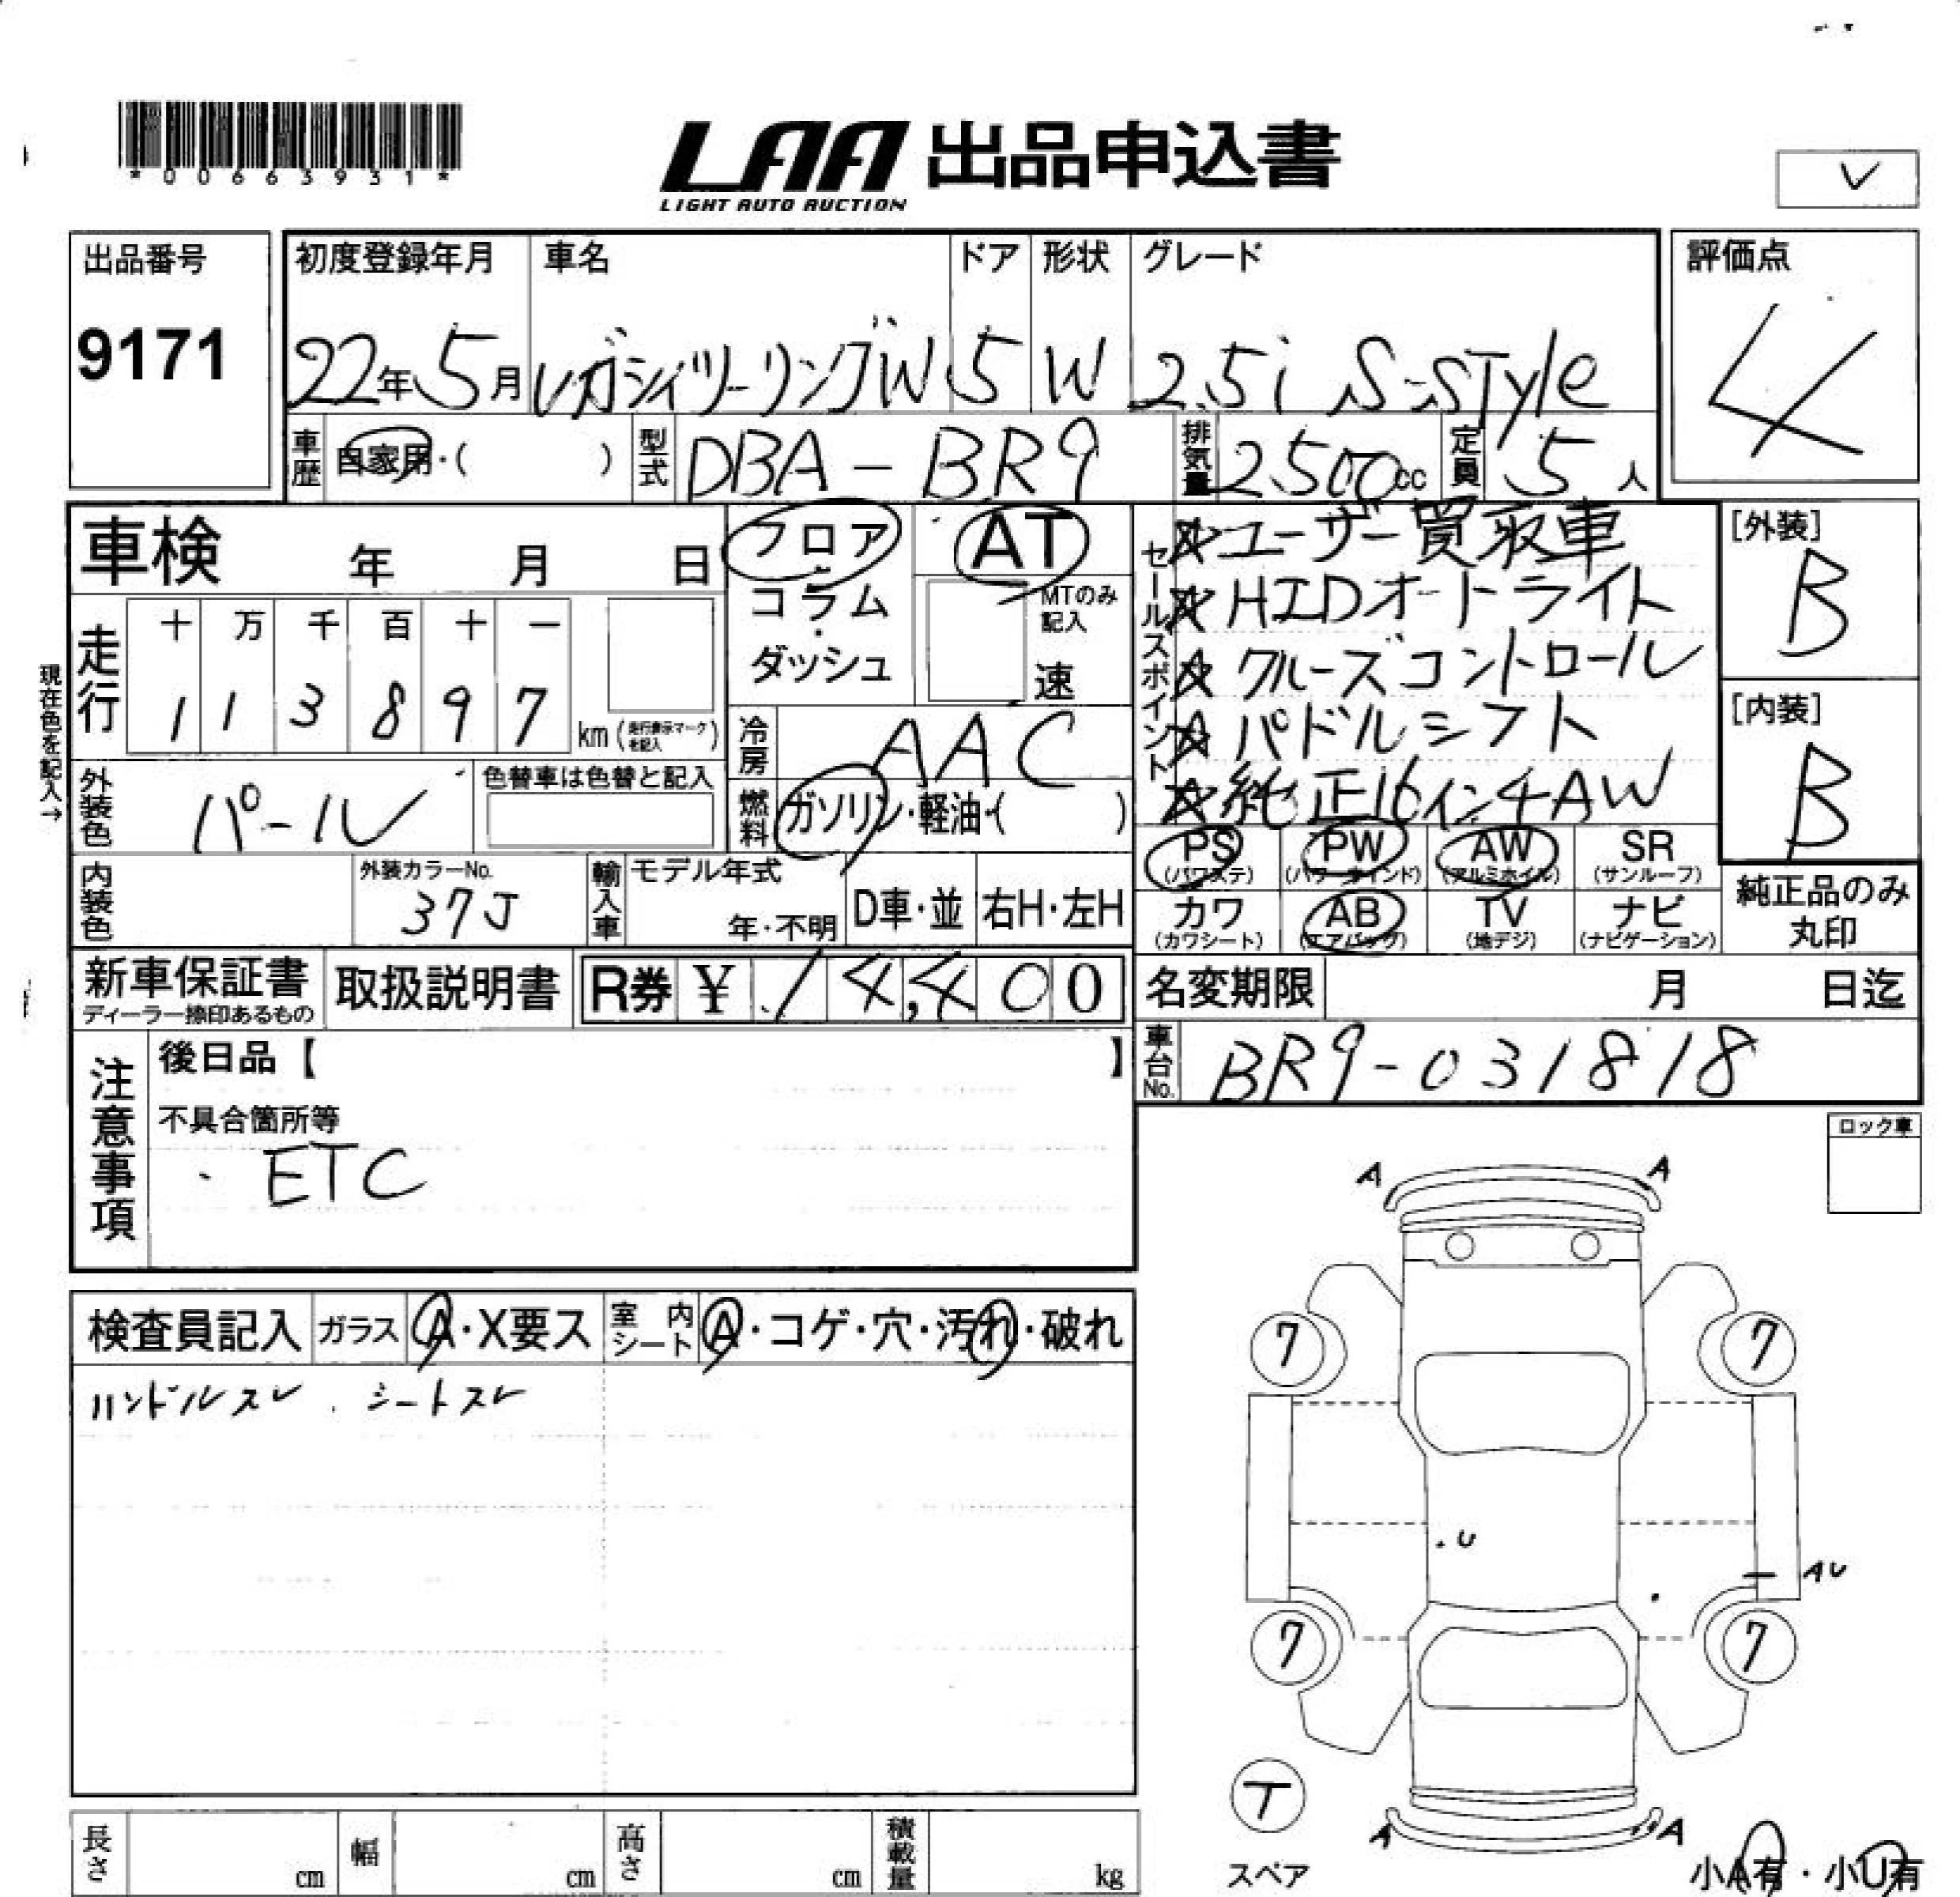 *00663931*
LAA 出品申込書
LIGHT AUTO AUCTION
✓
出品番号
9171
初度登録年月 車名 ドア 形状 グレード
22年5月 レガシィツーリングW 5 W 2.5i S-style
評価点
4
車歴 自家用・( ) 型式 DBA-BR9 排気量 2500cc 定員 5人
車検 年 月 日
フロア・コラム・ダッシュ
AT
MTのみ記入
速
セールスポイント
☆ユーザー買取車
☆HIDオートライト
☆クルーズコントロール
☆パドルシフト
☆純正16インチAW
[外装]
B
[内装]
B
現在色を記入→
走行 十 万 千 百 十 一
1 1 3 8 9 7 km(走行表示マークを記入)
冷房 AAC
外装色 パール 色替車は色替と記入
燃料 ガソリン・軽油・( )
PS (パワステ) PW (パワーウインド) AW (アルミホイル) SR (サンルーフ)
カワ (カワシート) AB (エアバッグ) TV (地デジ) ナビ (ナビゲーション)
純正品のみ
丸印
内装色 外装カラーNo. 37J
輸入車 モデル年式 年・不明 D車・並 右H・左H
新車保証書 ディーラー捺印あるもの 取扱説明書 R券 ¥ 14,400
名変期限 月 日迄
車台No. BR9-031818
注意事項
後日品【 】
不具合箇所等
・ETC
ロック車
検査員記入 ガラス A・X要ス 室内シート A・コゲ・穴・汚れ・破れ
ハンドルスレ . シートスレ
A A
7 7
.U
AU
7 7
T
スペア
A A
小A有・小U有
長さ cm 幅 cm 高さ cm 積載量 kg